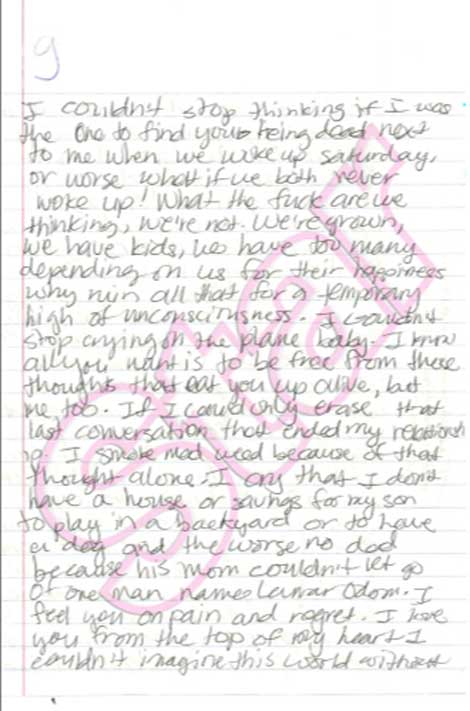 9
I couldn't stop thinking if I was
the one to find your being dead next
to me when we woke up saturday,
or worse what if we both never
woke up! What the fuck are we
thinking, we're not. We're grown,
we have kids, we have too many
depending on us for their happiness
why ruin all that for a temporary
high of unconsciousness. I couldn't
stop crying on the plane baby. I know
all you want is to be free from these
thoughts that eat you up alive, but
me too. If I could only erase that
last conversation that ended my relationsh
ip I smoke mad weed because of that
thought alone. I cry that I don't
have a house or savings for my son
to play in a backyard or to have
a dog and the worse no dad
because his mom couldn't let go
of one man name Lamar Odom. I
feel you on pain and regret. I love
you from the top of my heart I
couldn't imagine this world without
Star